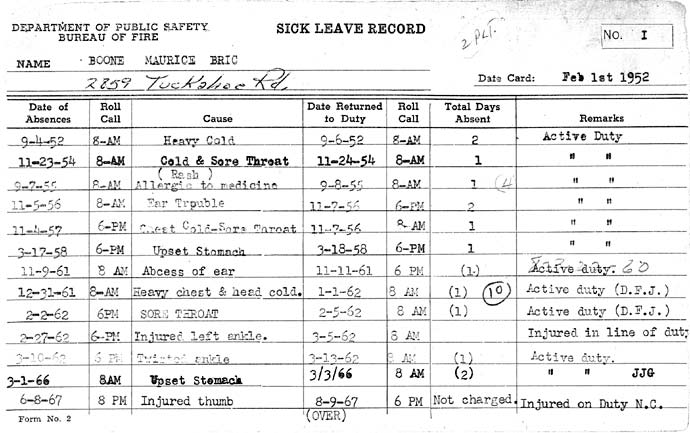 DEPARTMENT OF PUBLIC SAFETY
BUREAU OF FIRE
SICK LEAVE RECORD
2 PLT.
NO. I
NAME BOONE MAURICE BRIC
2859 Tuckahoe Rd.
Date Card: Feb 1st 1952
Date of Absences Roll Call Cause Date Returned to Duty Roll Call Total Days Absent Remarks
9-4-52 8-AM Heavy Cold 9-6-52 8-AM 2 Active Duty
11-23-54 8-AM Cold & Sore Throat 11-24-54 8-AM 1 " "
( Rash )
9-7-55 8-AM Allergic to medicine 9-8-55 8-AM 1 (4) " "
11-5-56 8-AM Ear Trpuble 11-7-56 6-PM 2 " "
11-4-57 6-PM Chest Cold-Sore Throat 11-7-56 8 AM 1 " "
3-17-58 6-PM Upset Stomach 3-18-58 6-PM 1 " "
11-9-61 8 AM Abcess of ear 11-11-61 6 PM (1) Active duty.
12-31-61 8-AM Heavy chest & head cold. 1-1-62 8 AM (1) (10) Active duty (D.F.J.)
2-2-62 6PM SORE THROAT 2-5-62 8 AM (1) Active duty (D.F.J.)
2-27-62 6-PM Injured left ankle. 3-5-62 8 AM Injured in line of duty
3-10-62 6 PM Twisted ankle 3-13-62 8 AM (1) Active duty.
3-1-66 8AM Upset Stomach 3/3/66 8 AM (2) " " JJG
6-8-67 8 PM Injured thumb 8-9-67 6 PM Not charged. Injured on Duty N.C.
Form No. 2 (OVER)